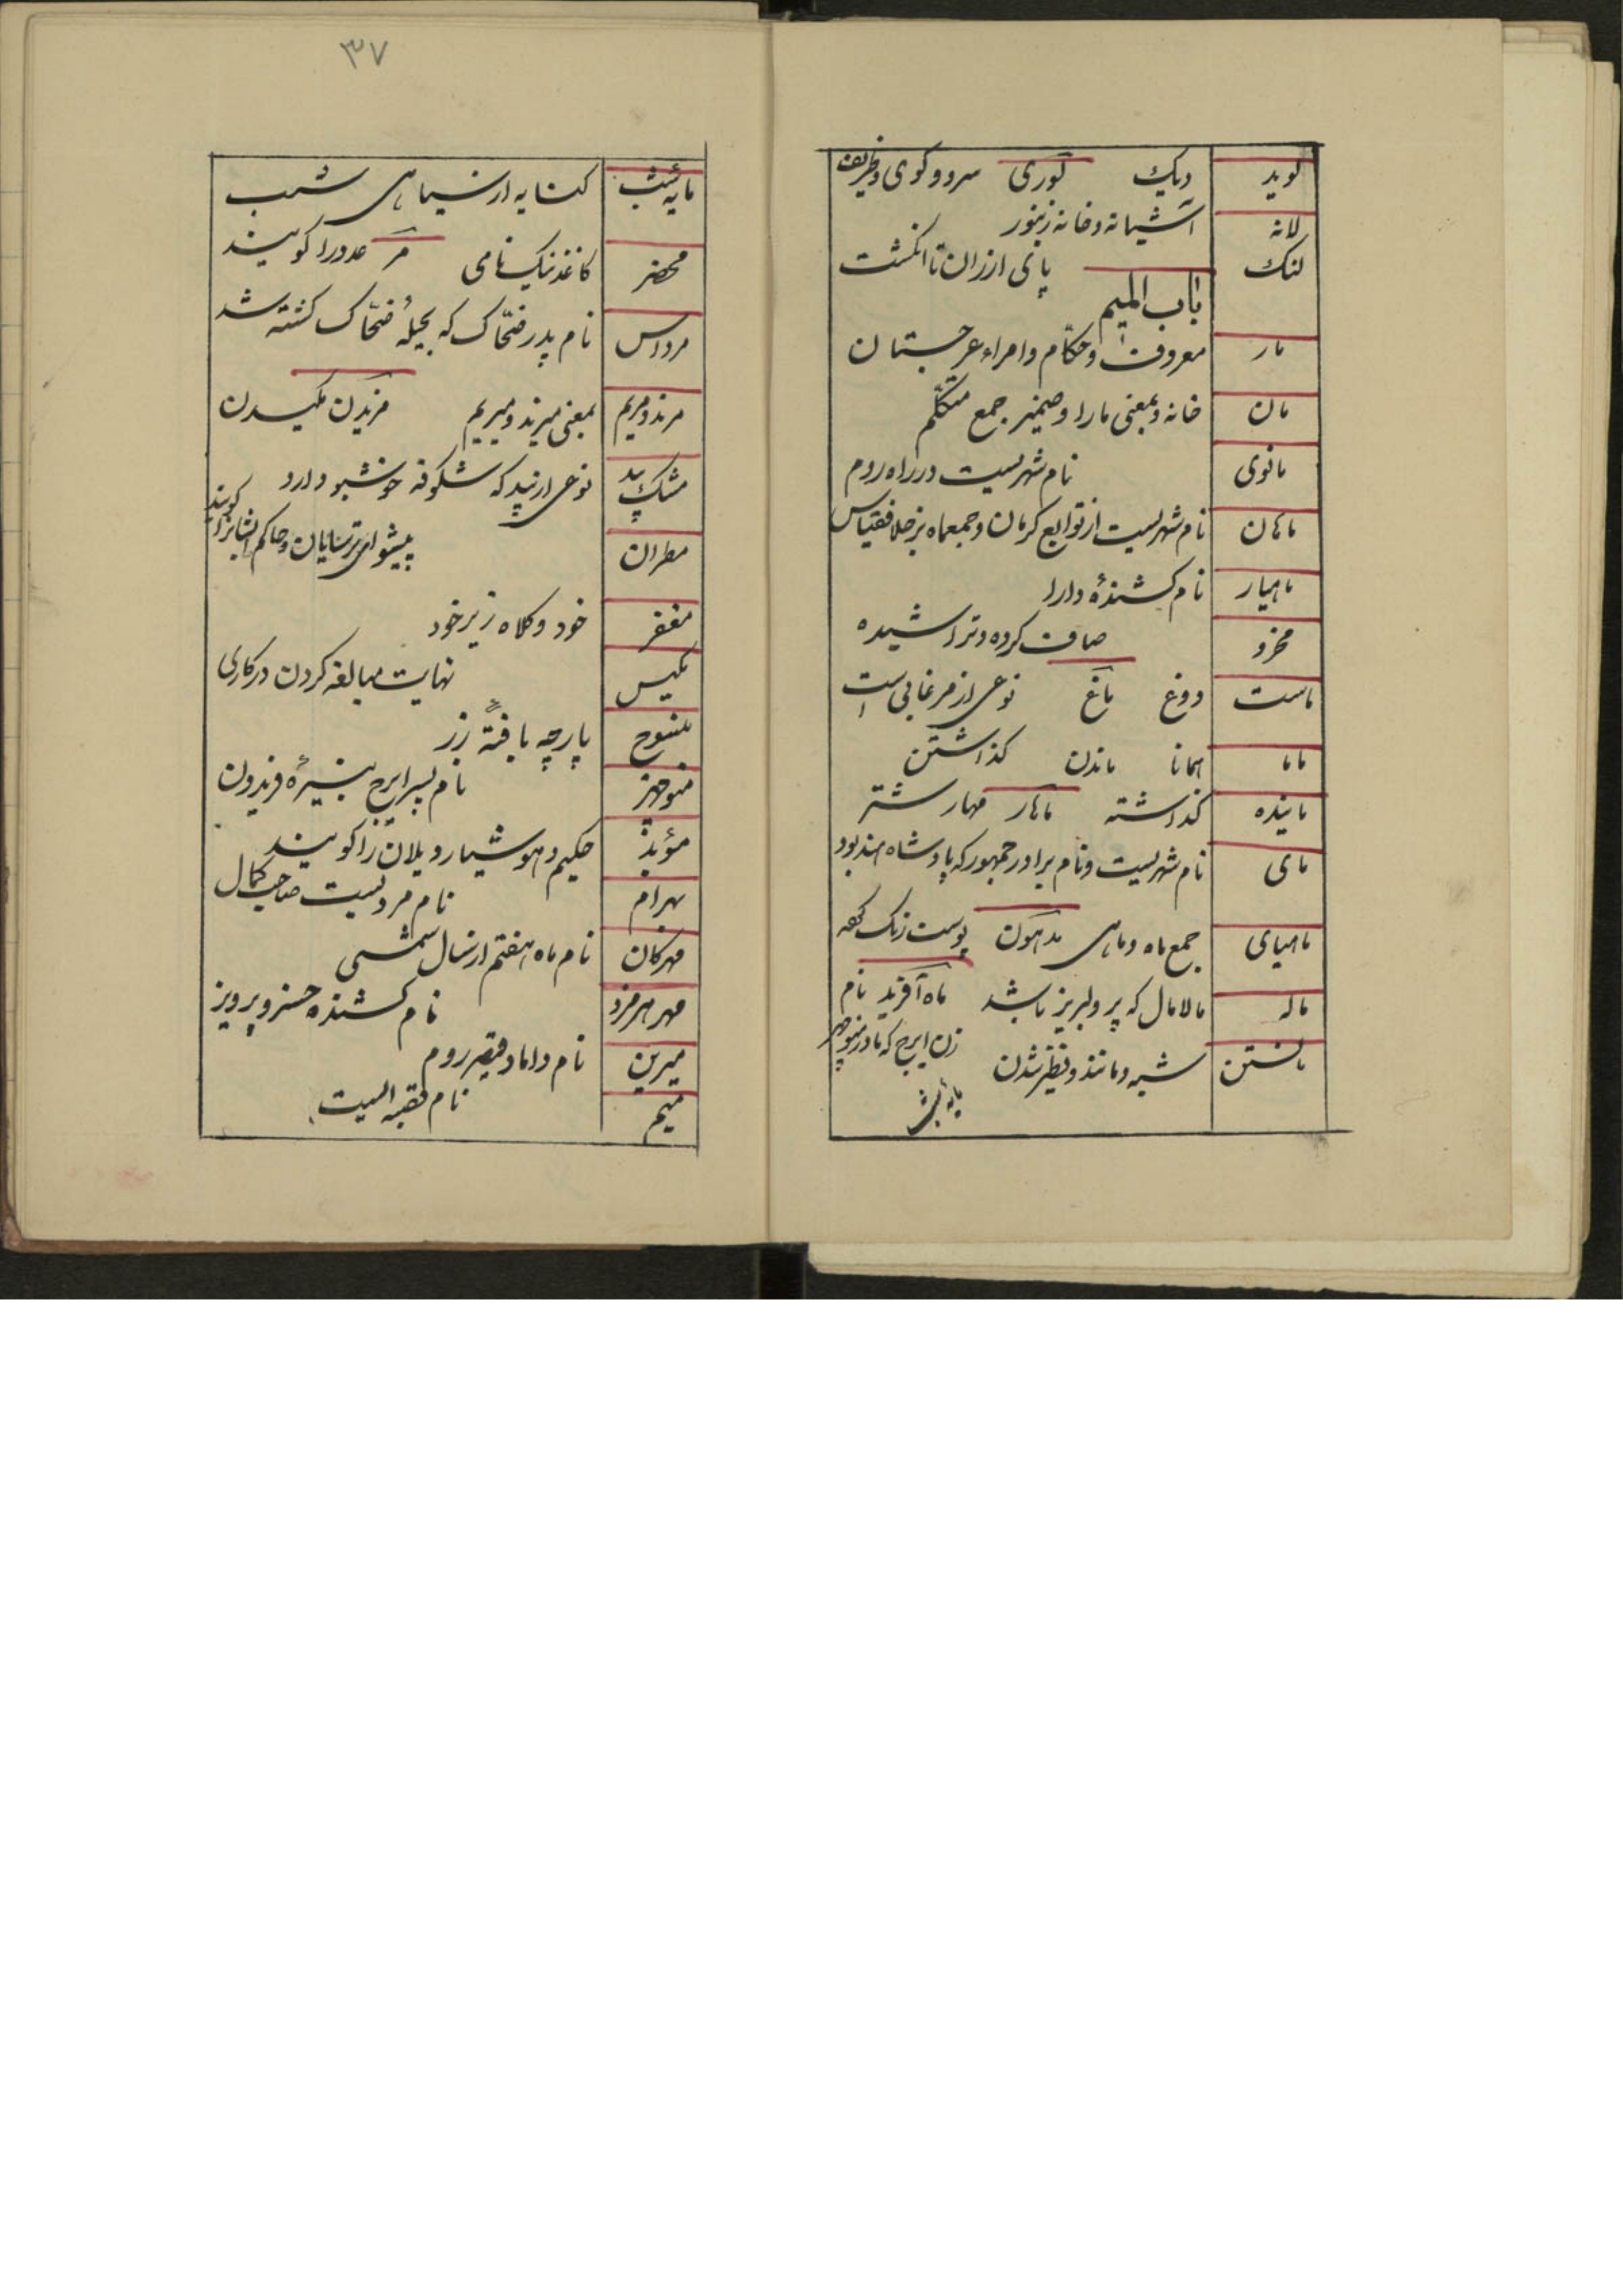 لوید دیک لوری سرود کوی و ظریف
لانه آشیانه و خانه زنبور
لنک پای از ران تا انکشت
باب المیم
مار معروفست و حکّام و امراء غرجستان
مان خانه و بمعنی مارا و ضمیر جمع متکلّم
مانوی نام شهریست در راه روم
ماهان نام شهریست از توابع کرمان و جمع ماه بر خلاف قیاس
ماهیار نام کشندهٔ دارا
مخرو صاف کرده و تراشیده
ماست دوغ ماغ نوعی از مرغابی است
مانا همانا ماندن کذاشتن
مانیده کذاشته ماهار مهار شتر
مای نام شهریست و نام برادر جمهور که پادشاه هند بود
ماهیای جمع ماه و ماهی مدهون پوست رنک
ماله مالامال که پر و لبریز باشد ماه آفرید نام
مانستن شبیه و مانند و نظیر شدن زن ایرج که مادر منوچهر
۳۷
مایه شب کنایه از سیاهی شب
محضر کاغذ نیک نامی مر عدد را کویند
مرداس نام پدر ضحّاک که بحیلهٔ ضحّاک کشته شد
مرند و مریم بمعنی میرند و میریم مزیدن مکیدن
مشک بید نوعی از بید که شکوفه خوشبو دارد
مطران پیشوای ترسایان و حاکم ایشانرا کویند
مغفر خود و کلاه زیر خود
مکیس نهایت مبالغه کردن در کاری
منسوج پارچه بافتهٔ زر
منوچهر نام پسر ایرج نبیرهٔ فریدون
مؤبد حکیم و هوشیار و یلان را کویند
مهرام نام مردیست صاحب کمال
مهرکان نام ماه هفتم از سال شمسی
مهر هرمزد نام کشنده خسرو پرویز
میرین نام داماد قیصر روم
میم نام قصبه ایست